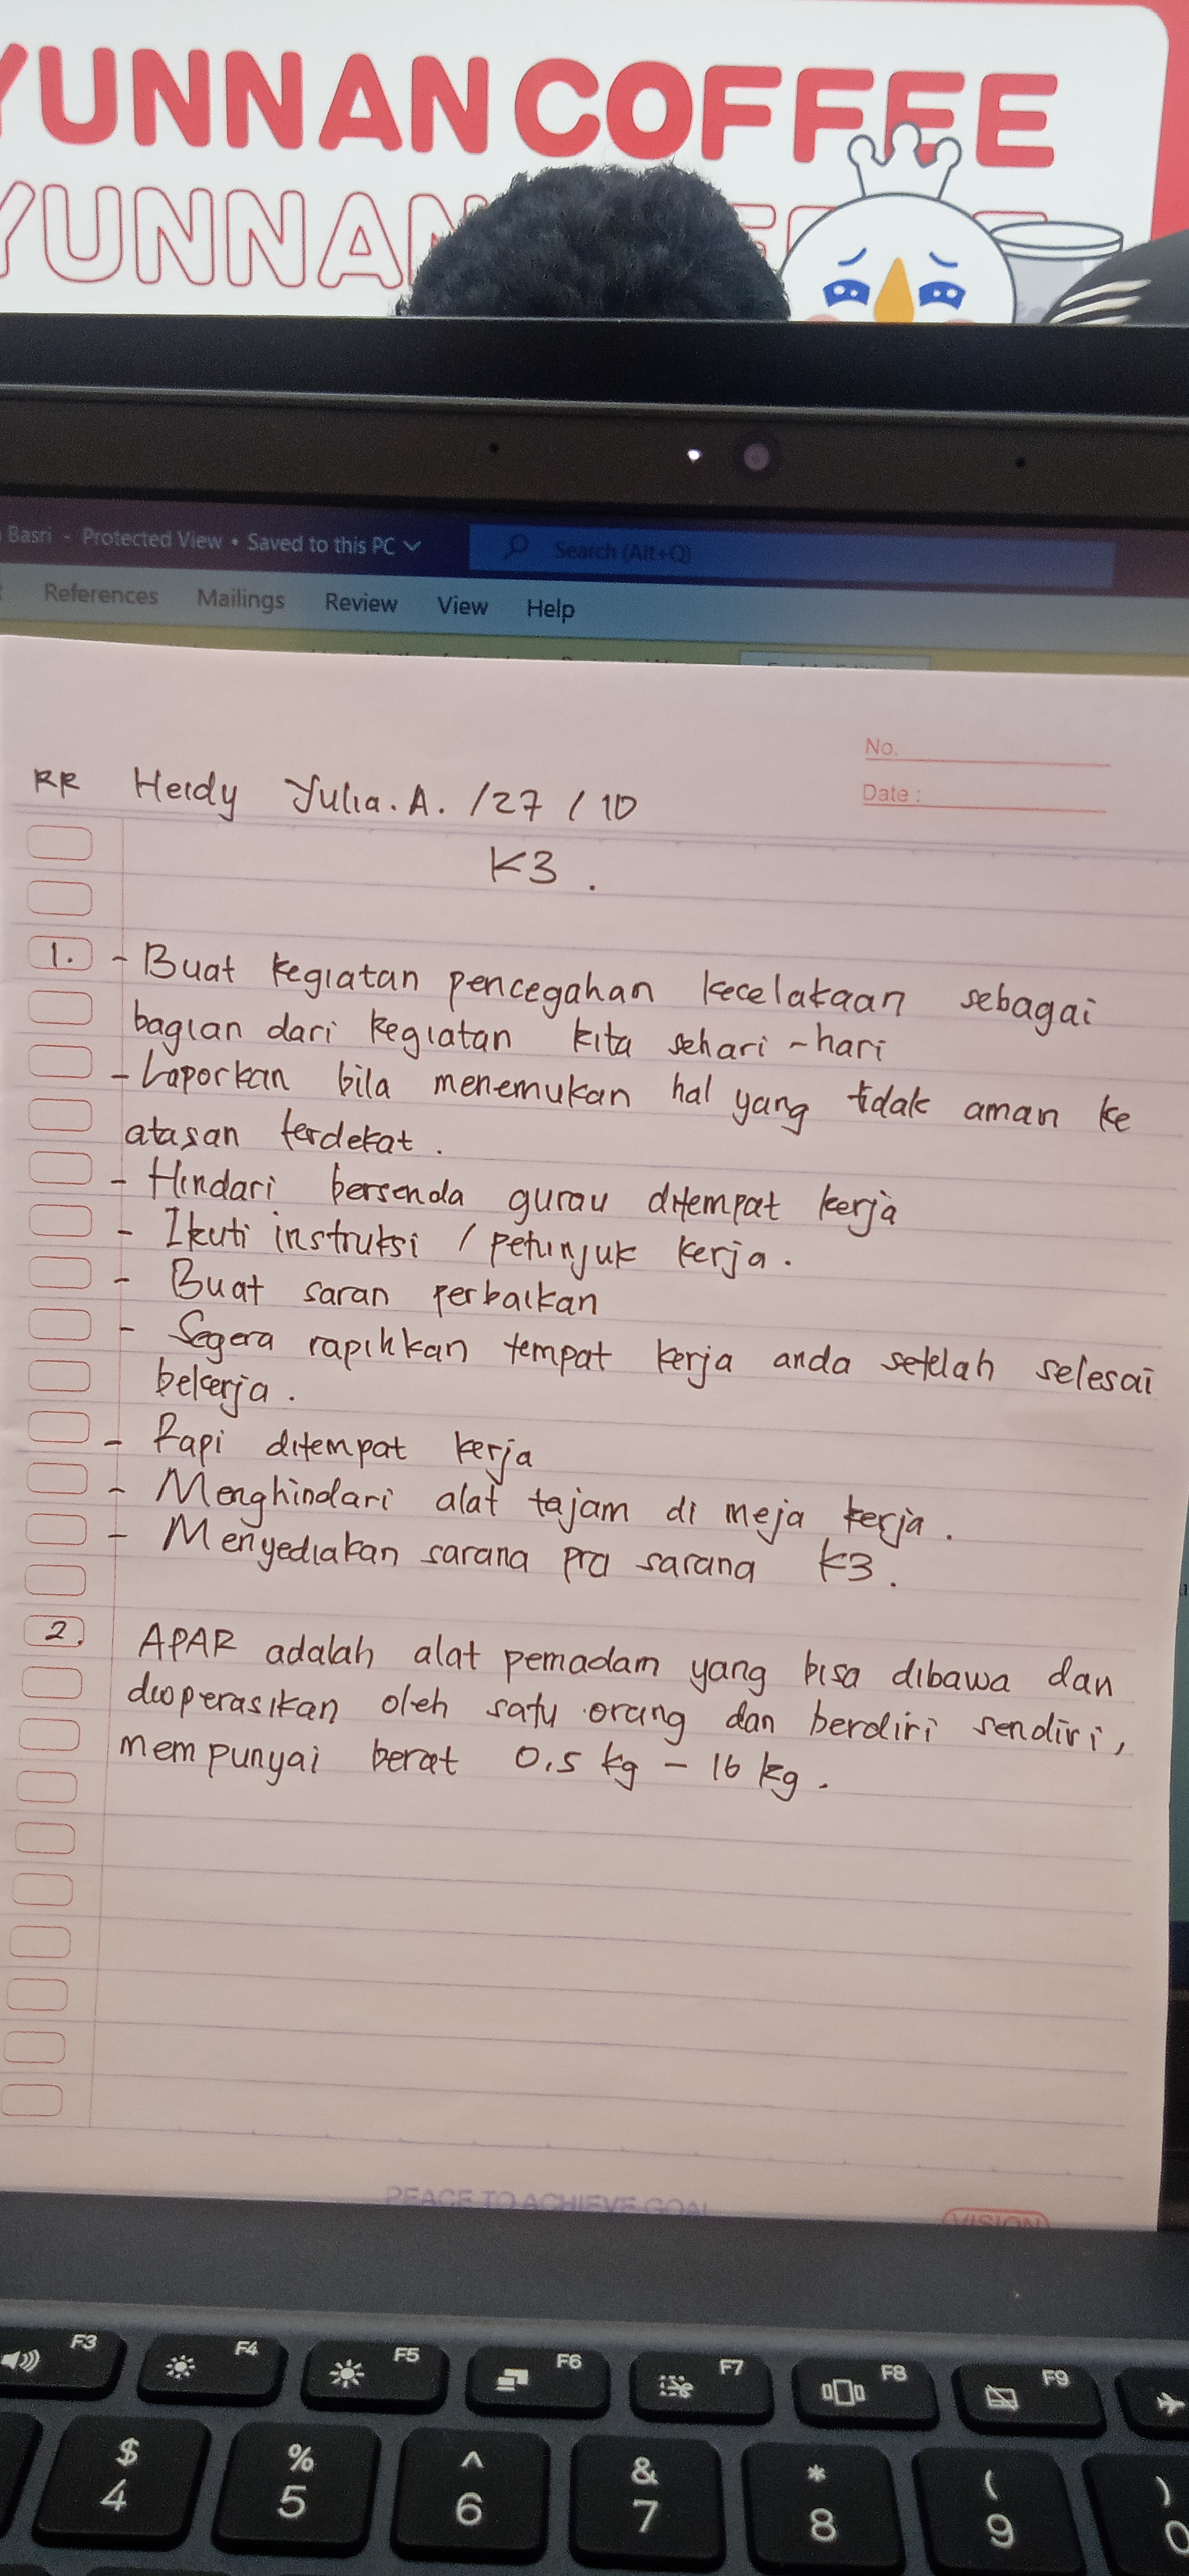 YUNNAN COFFEE
YUNNAN
Basri - Protected View • Saved to this PC
Search (Alt+Q)
References Mailings Review View Help
No.
Date :
RR Herdy Yulia. A. /27 / 10
K3 .
1. - Buat kegiatan pencegahan kecelakaan sebagai
bagian dari kegiatan kita sehari-hari
- Laporkan bila menemukan hal yang tidak aman ke
atasan terdekat .
- Hindari bersenda gurau ditempat kerja
- Ikuti instruksi / petunjuk kerja .
- Buat saran perbaikan
- Segera rapihkan tempat kerja anda setelah selesai
bekerja .
- Rapi ditempat kerja
- Menghindari alat tajam di meja kerja .
- Menyediakan sarana pra sarana K3 .
2. APAR adalah alat pemadam yang bisa dibawa dan
dioperasikan oleh satu orang dan berdiri sendiri,
mempunyai berat 0,5 kg - 16 kg .
PEACE TO ACHIEVE GOAL
VISION
F3 F4 F5 F6 F7 F8 F9
$ % ^ & * ( )
4 5 6 7 8 9 0